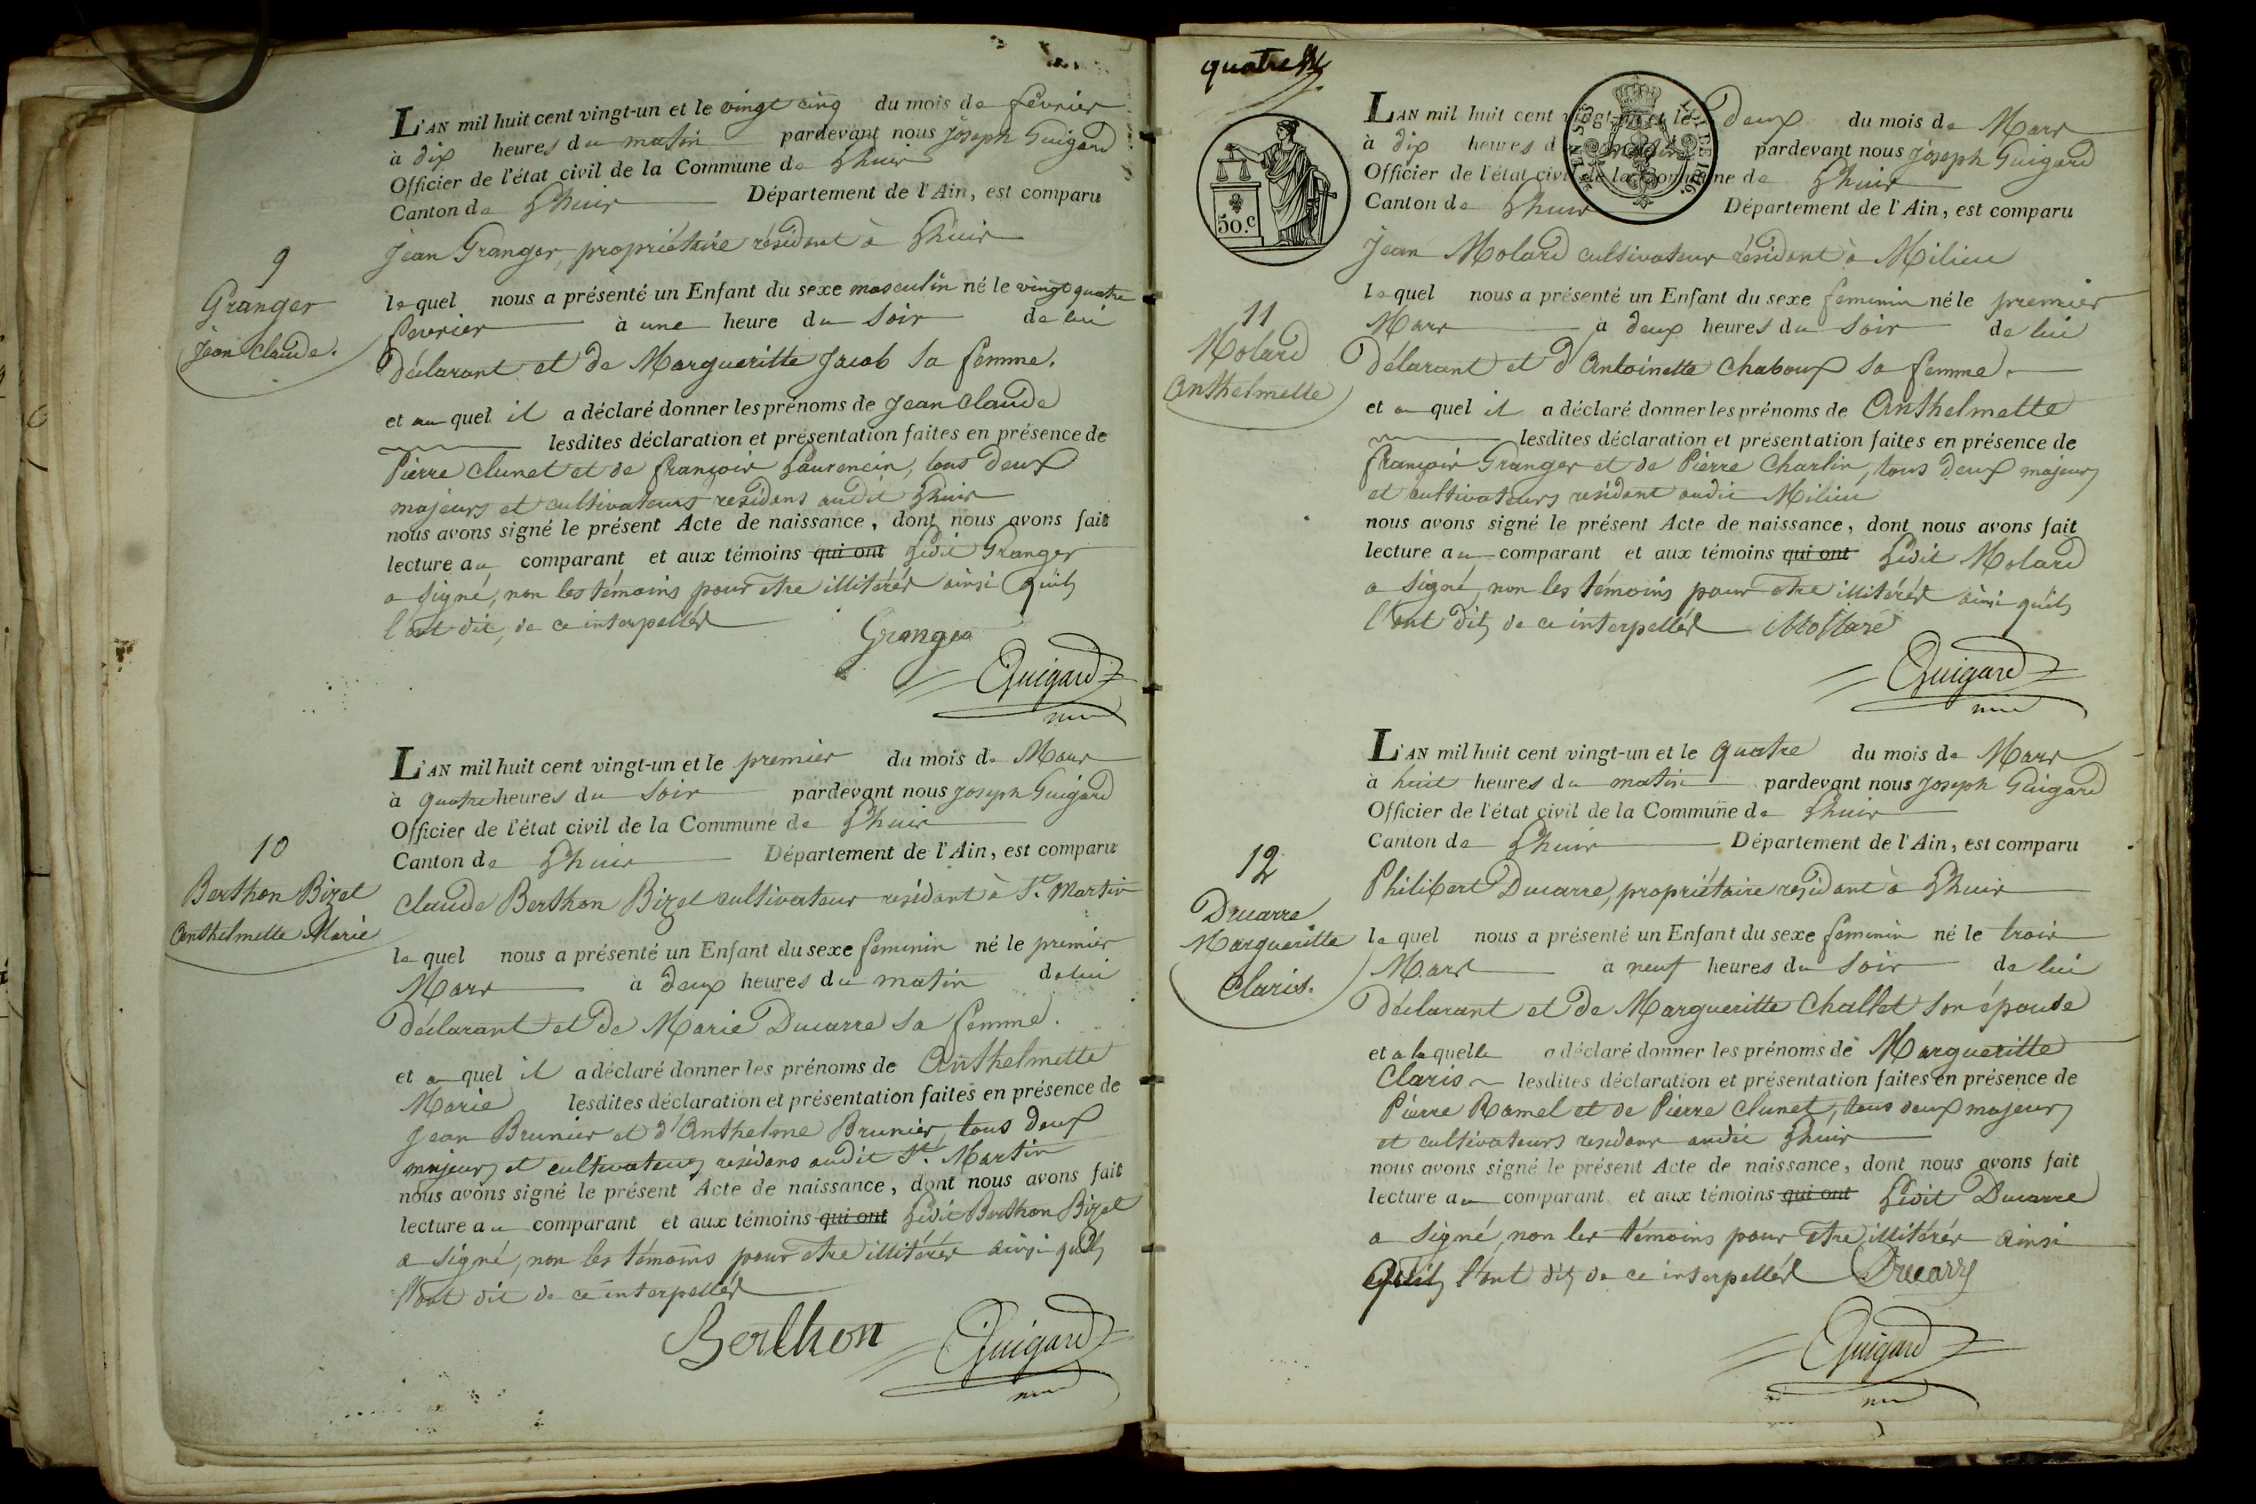 L'AN mil huit cent vingt-un et le vingt cinq du mois de février
à dix heures du matin pardevant nous Joseph Guigard
Officier de l'état civil de la Commune de Lhuis
Canton de Lhuis Département de l'Ain, est comparu
Jean Granger, propriétaire résidant à Lhuis
9
Granger
Jean Claude.
lequel nous a présenté un Enfant du sexe masculin né le vingt quatre
fevrier à une heure du soir de lui
Déclarant et de Margueritte Jacob sa femme.
et auquel il a déclaré donner les prénoms de Jean Claude
lesdites déclaration et présentation faites en présence de
Pierre Clunet et de françois Laurencin, tous deux
majeurs et cultivateurs residans audit Lhuis
nous avons signé le présent Acte de naissance, dont nous avons fait
lecture au comparant et aux témoins qui ont Ledit Granger
a signé, non les témoins pour etre illitérés ainsi quils
l'ont dit, de ce interpellés
Granger
Guigard
L'AN mil huit cent vingt-un et le premier du mois de Mars
à quatre heures du soir pardevant nous Joseph Guigard
Officier de l'état civil de la Commune de Lhuis
Canton de Lhuis Département de l'Ain, est comparu
10
Berthon Bizet
Anthelmette Marie
Claude Berthon Bizet cultivateur residant à St. Martin
lequel nous a présenté un Enfant du sexe feminin né le premier
Mars à deux heures du matin de lui
Déclarant et de Marie Ducarre sa femme.
et auquel il a déclaré donner les prénoms de Anthelmette
Marie lesdites déclaration et présentation faites en présence de
Jean Brunier et d'Anthelme Brunier, tous deux
majeurs et cultivateurs residans audit St. Martin
nous avons signé le présent Acte de naissance, dont nous avons fait
lecture au comparant et aux témoins qui ont Ledit Berthon Bizet
a signé, non les témoins pour etre illitérés ainsi quils
l'ont dit de ce interpellés
Berthon
Guigard
quatre
50.c
L'AN mil huit cent vingt-un et le deux du mois de Mars
à dix heures du matin pardevant nous Joseph Guigard
Officier de l'état civil de la Commune de Lhuis
Canton de Lhuis Département de l'Ain, est comparu
Jean Molard cultivateur résidant à Milieu
11
Molard
Anthelmette
lequel nous a présenté un Enfant du sexe feminin né le premier
Mars à deux heures du soir de lui
Délarant et d'Antoinette Chaboux sa femme.
et auquel il a déclaré donner les prénoms de Anthelmette
lesdites déclaration et présentation faites en présence de
françois Granger et de Pierre Charlin, tous deux majeurs
et cultivateurs residant audit Milieu
nous avons signé le présent Acte de naissance, dont nous avons fait
lecture au comparant et aux témoins qui ont Ledit Molard
a signé, non les témoins pour etre illitérés ainsi quils
l'ont dits de ce interpellés
Guigard
L'AN mil huit cent vingt-un et le quatre du mois de Mars
à huit heures du matin pardevant nous Joseph Guigard
Officier de l'état civil de la Commune de Lhuis
Canton de Lhuis Département de l'Ain, est comparu
12
Ducarre
Margueritte
Claris.
Philibert Ducarre, propriétaire residant à Lhuis
lequel nous a présenté un Enfant du sexe feminin né le trois
Mars à neuf heures du soir de lui
Déclarant et de Margueritte Challet son épouse
et a laquelle a déclaré donner les prénoms de Margueritte
Claris lesdites déclaration et présentation faites en présence de
Pierre Ramel et de Pierre Clunet, tous deux majeurs
et cultivateurs residans audit Lhuis
nous avons signé le présent Acte de naissance, dont nous avons fait
lecture au comparant et aux témoins qui ont Ledit Ducarre
a signé, non les témoins pour etre illitérés ainsi
quils l'ont dits de ce interpellés Ducarre
Guigard